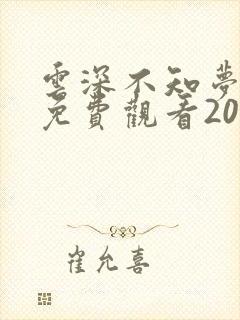 雲深不知夢
免費觀看20
崔允喜